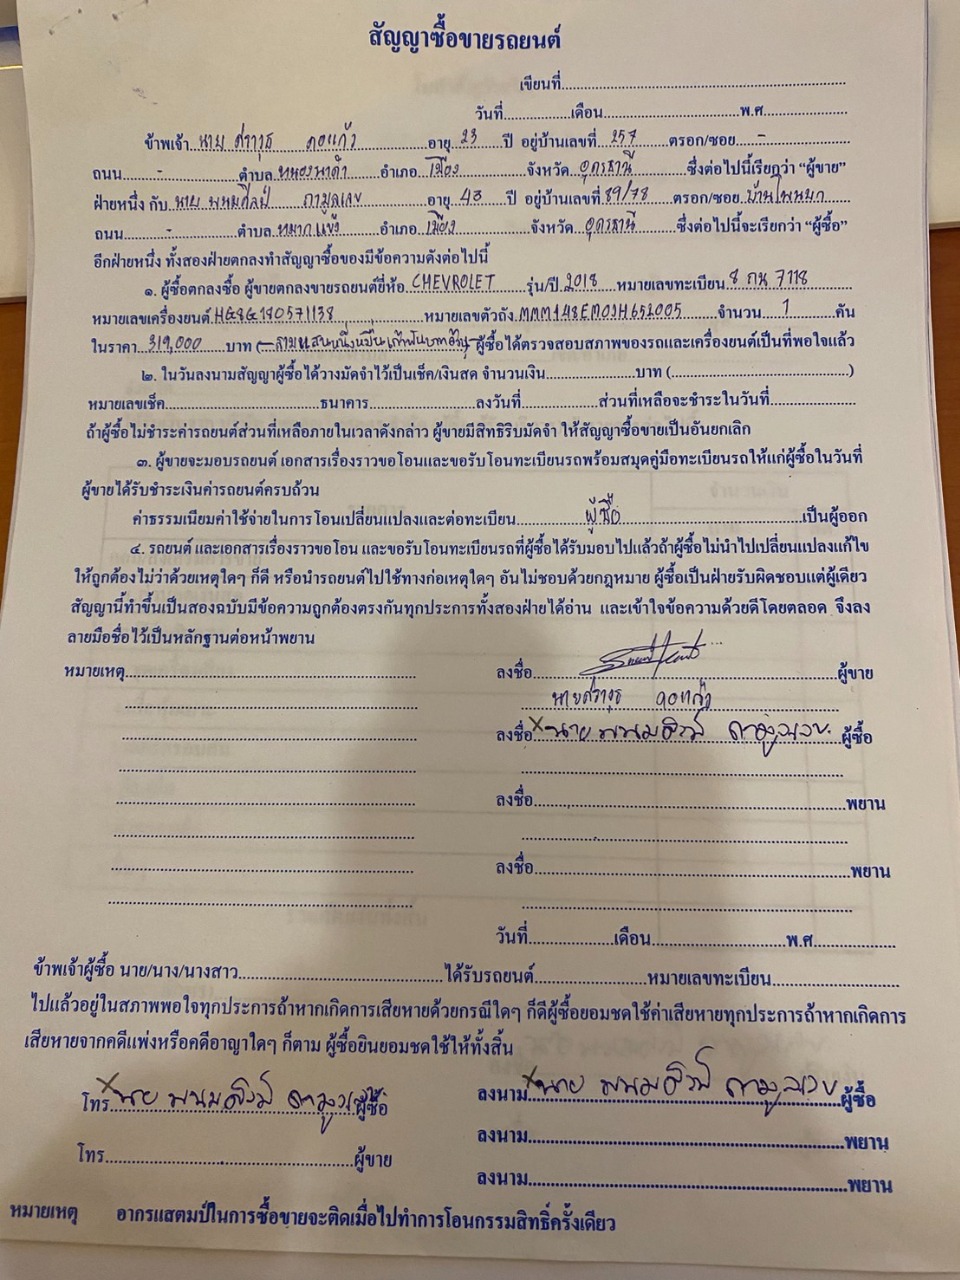 สัญญาซื้อขายรถยนต์
เขียนที่
วันที่ เดือน พ.ศ.
ข้าพเจ้า นาย ศราวุธ ดอนแก้ว อายุ 23 ปี อยู่บ้านเลขที่ 257 ตรอก/ซอย -
ถนน - ตำบล หนองนาคำ อำเภอ เมือง จังหวัด อุดรธานี ซึ่งต่อไปนี้เรียกว่า “ผู้ขาย”
ฝ่ายหนึ่ง กับ นาย อายุ 43 ปี อยู่บ้านเลขที่ 89/78 ตรอก/ซอย
ถนน - ตำบล หมากแข้ง อำเภอ เมือง จังหวัด อุดรธานี ซึ่งต่อไปนี้จะเรียกว่า “ผู้ซื้อ”
อีกฝ่ายหนึ่ง ทั้งสองฝ่ายตกลงทำสัญญาซื้อของมีข้อความดังต่อไปนี้
๑. ผู้ซื้อตกลงซื้อ ผู้ขายตกลงขายรถยนต์ยี่ห้อ CHEVROLET รุ่น/ปี 2018 หมายเลขทะเบียน 8 กน 7118
หมายเลขเครื่องยนต์ HG8G180571138 หมายเลขตัวถัง MMM148EM0JH652005 จำนวน 1 คัน
ในราคา 319,000 บาท (-สามแสนหนึ่งหมื่นเก้าพันบาทถ้วน-) ผู้ซื้อได้ตรวจสอบสภาพของรถและเครื่องยนต์เป็นที่พอใจแล้ว
๒. ในวันลงนามสัญญาผู้ซื้อได้วางมัดจำไว้เป็นเช็ค/เงินสด จำนวนเงิน บาท ( )
หมายเลขเช็ค ธนาคาร ลงวันที่ ส่วนที่เหลือจะชำระในวันที่
ถ้าผู้ซื้อไม่ชำระค่ารถยนต์ส่วนที่เหลือภายในเวลาดังกล่าว ผู้ขายมีสิทธิริบมัดจำ ให้สัญญาซื้อขายเป็นอันยกเลิก
๓. ผู้ขายจะมอบรถยนต์ เอกสารเรื่องราวขอโอนและขอรับโอนทะเบียนรถพร้อมสมุดคู่มือทะเบียนรถให้แก่ผู้ซื้อในวันที่
ผู้ขายได้รับชำระเงินค่ารถยนต์ครบถ้วน
ค่าธรรมเนียมค่าใช้จ่ายในการโอนเปลี่ยนแปลงและต่อทะเบียน ผู้ซื้อ เป็นผู้ออก
๔. รถยนต์ และเอกสารเรื่องราวขอโอน และขอรับโอนทะเบียนรถที่ผู้ซื้อได้รับมอบไปแล้วถ้าผู้ซื้อไม่นำไปเปลี่ยนแปลงแก้ไข
ให้ถูกต้องไม่ว่าด้วยเหตุใดๆ ก็ดี หรือนำรถยนต์ไปใช้ทางก่อเหตุใดๆ อันไม่ชอบด้วยกฎหมาย ผู้ซื้อเป็นฝ่ายรับผิดชอบแต่ผู้เดียว
สัญญานี้ทำขึ้นเป็นสองฉบับมีข้อความถูกต้องตรงกันทุกประการทั้งสองฝ่ายได้อ่าน และเข้าใจข้อความด้วยดีโดยตลอด จึงลง
ลายมือชื่อไว้เป็นหลักฐานต่อหน้าพยาน
หมายเหตุ ลงชื่อ ผู้ขาย
นายศราวุธ ดอนแก้ว
ลงชื่อ นาย ผู้ซื้อ
ลงชื่อ พยาน
ลงชื่อ พยาน
วันที่ เดือน พ.ศ
ข้าพเจ้าผู้ซื้อ นาย/นาง/นางสาว ได้รับรถยนต์ หมายเลขทะเบียน
ไปแล้วอยู่ในสภาพพอใจทุกประการถ้าหากเกิดการเสียหายด้วยกรณีใดๆ ก็ดีผู้ซื้อยอมชดใช้ค่าเสียหายทุกประการถ้าหากเกิดการ
เสียหายจากคดีแพ่งหรือคดีอาญาใดๆ ก็ตาม ผู้ซื้อยินยอมชดใช้ให้ทั้งสิ้น
โทร นาย ผู้ซื้อ ลงนาม นาย ผู้ซื้อ
ลงนาม พยาน
โทร ผู้ขาย
ลงนาม พยาน
หมายเหตุ อากรแสตมป์ในการซื้อขายจะติดเมื่อไปทำการโอนกรรมสิทธิ์ครั้งเดียว